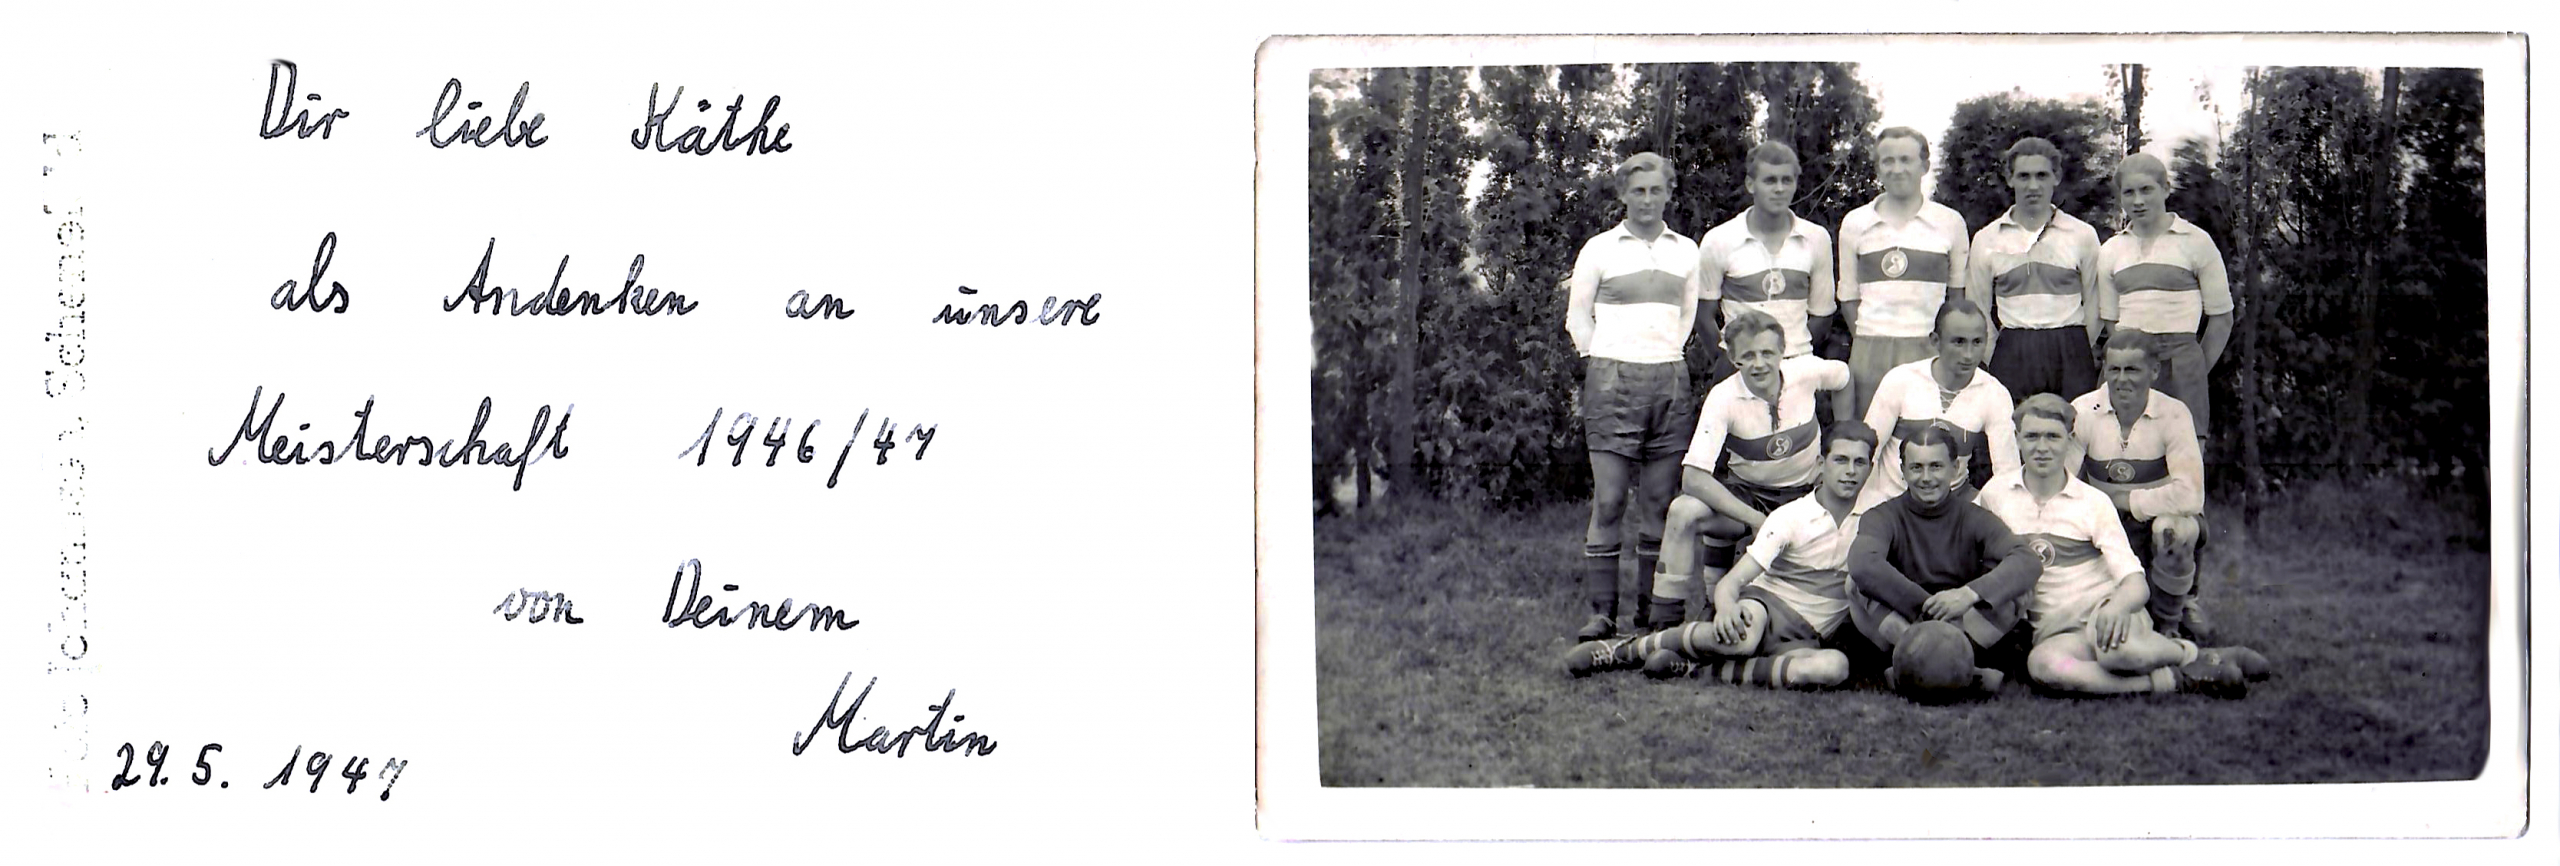 Dir liebe Käthe
als Andenken an unsere
Meisterschaft 1946/47
von Deinem
Martin
29. 5. 1947